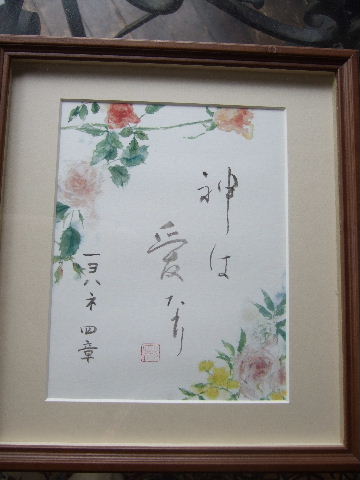 神は
愛なり
一ヨハネ四章